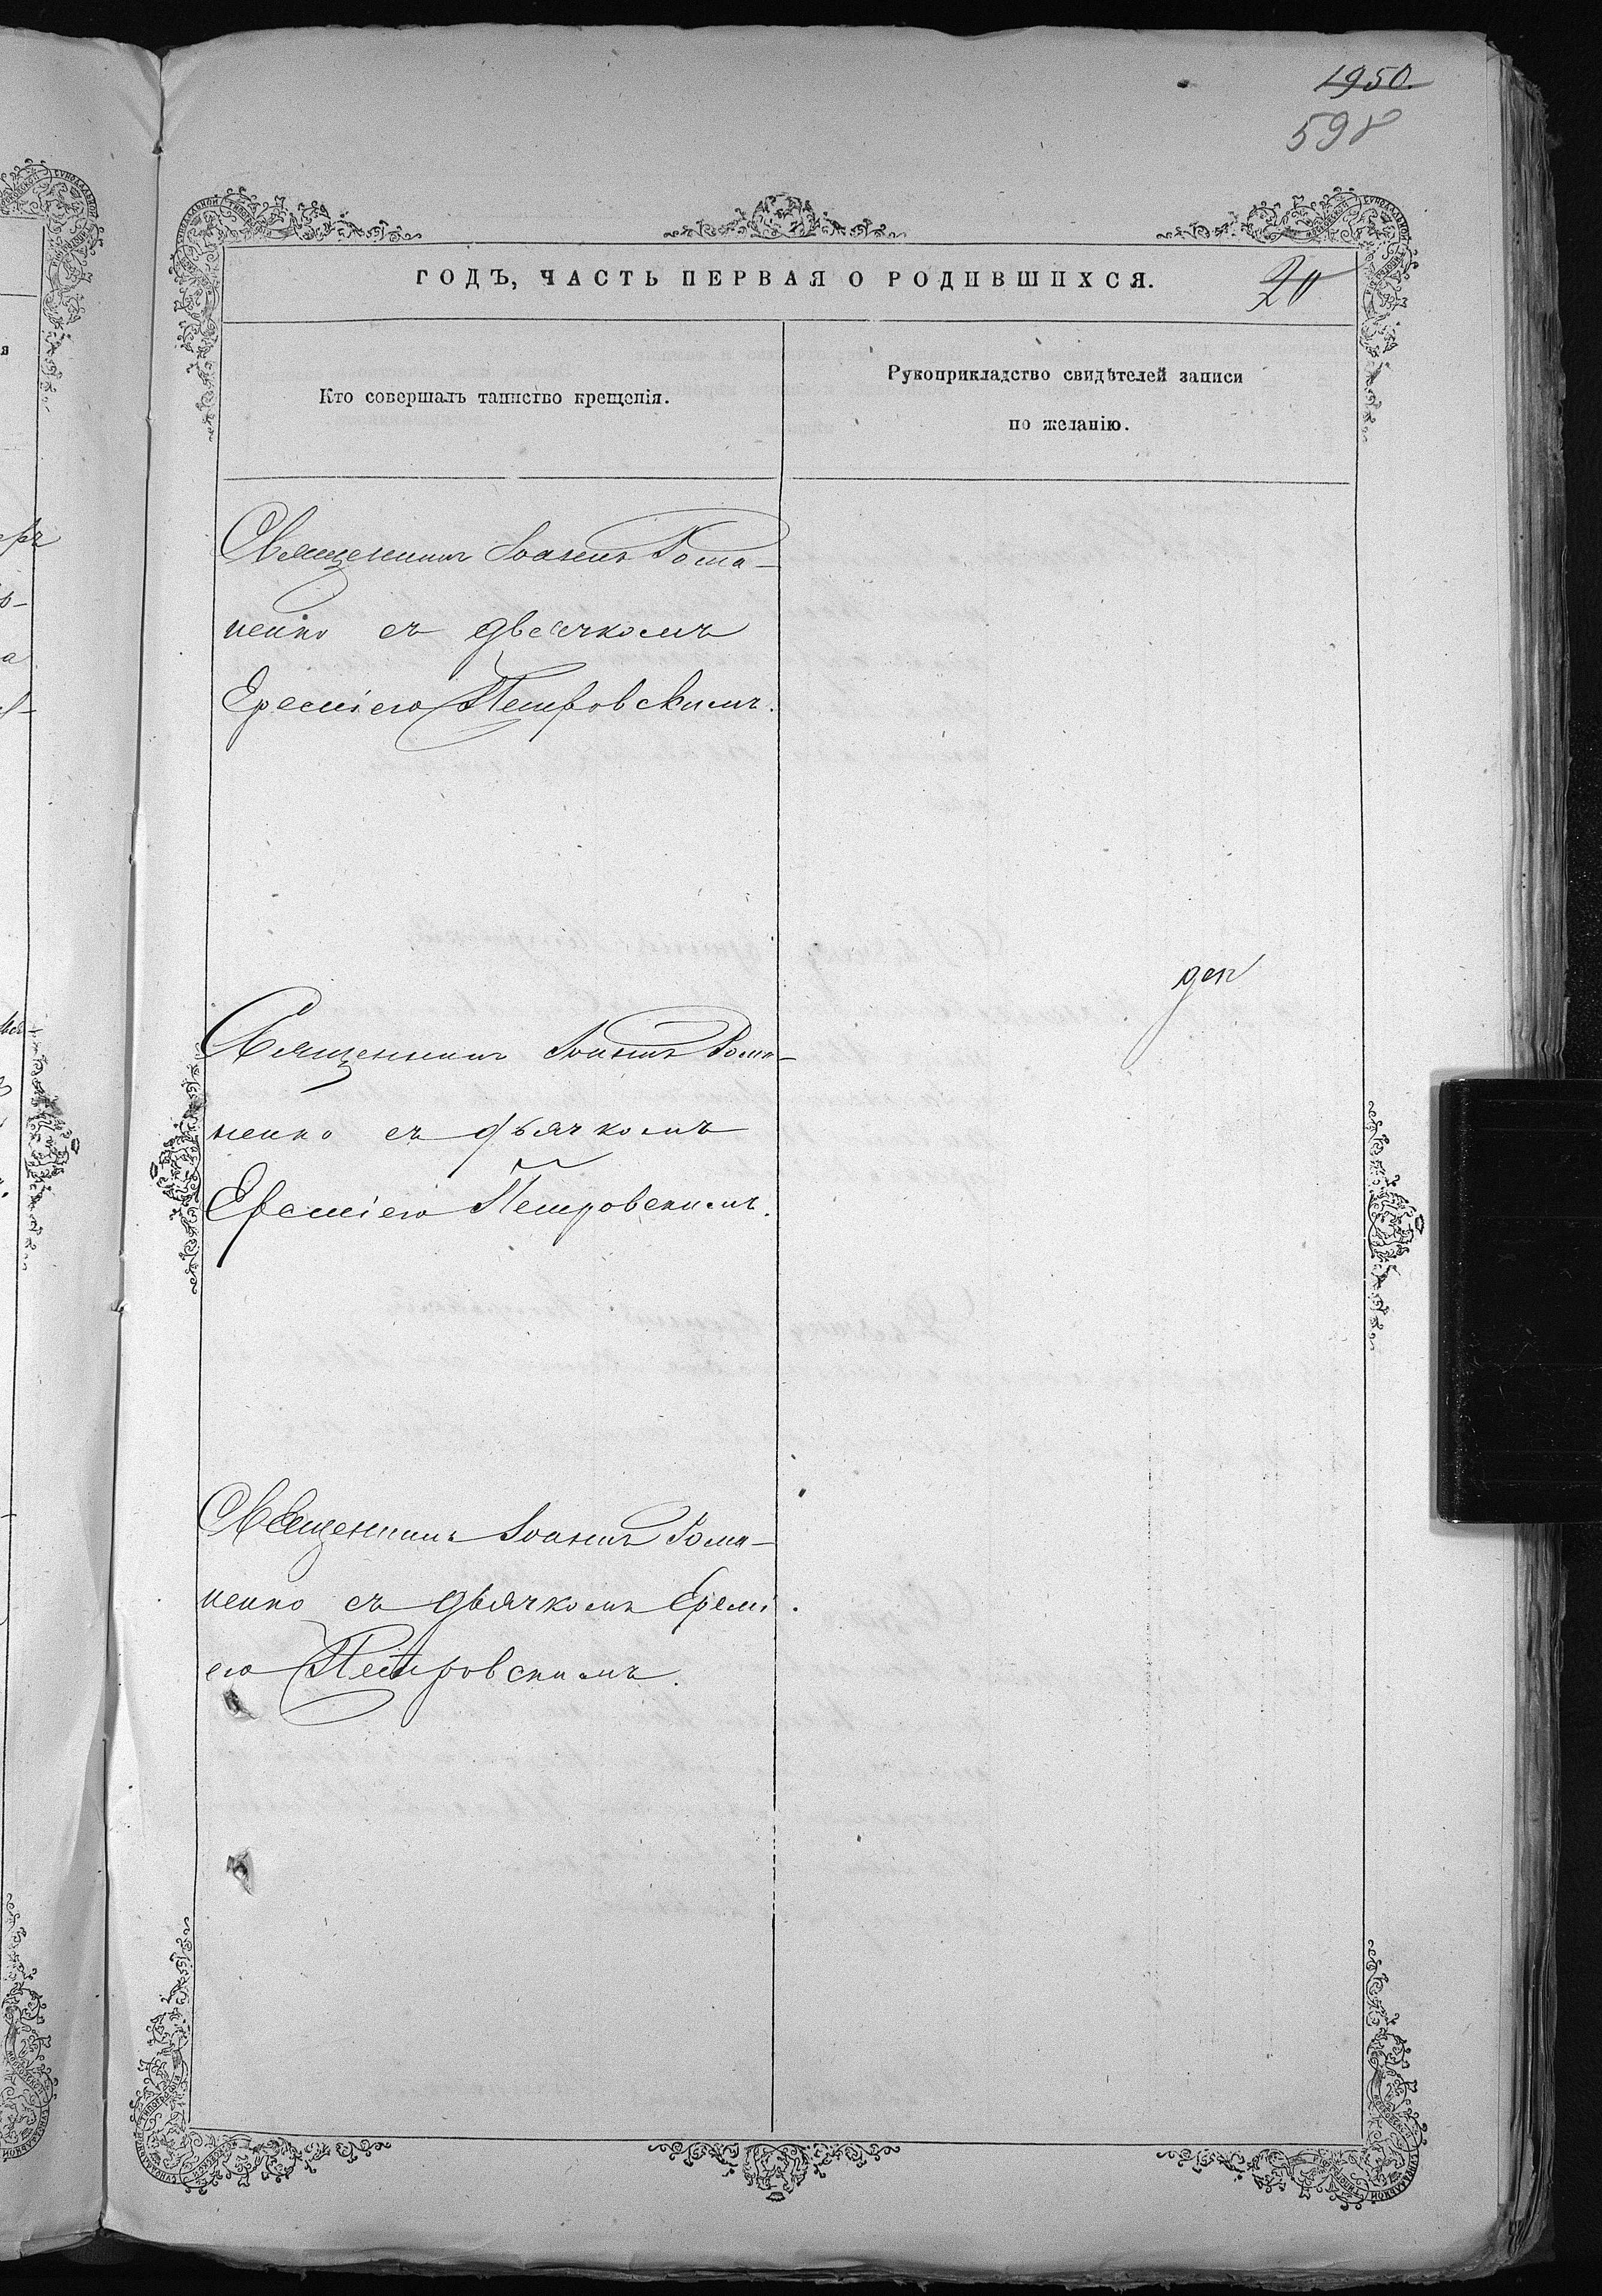 1950.
598
ГОДЪ, ЧАСТЬ ПЕРВАЯ О РОДИВШИХСЯ.
20
Кто совершалъ таинство крещенія.
Рукоприкладство свидѣтелей записи
по желанію.
Священникъ Іоаннъ Рома-
ненко съ дьячкомъ
Ереміею Петровскимъ.
Священникъ Іоаннъ Рома-
ненко съ дьячкомъ
Ереміею Петровскимъ.
Священникъ Іоаннъ Рома-
ненко съ дьячкомъ Еремі
ею Петровскимъ.